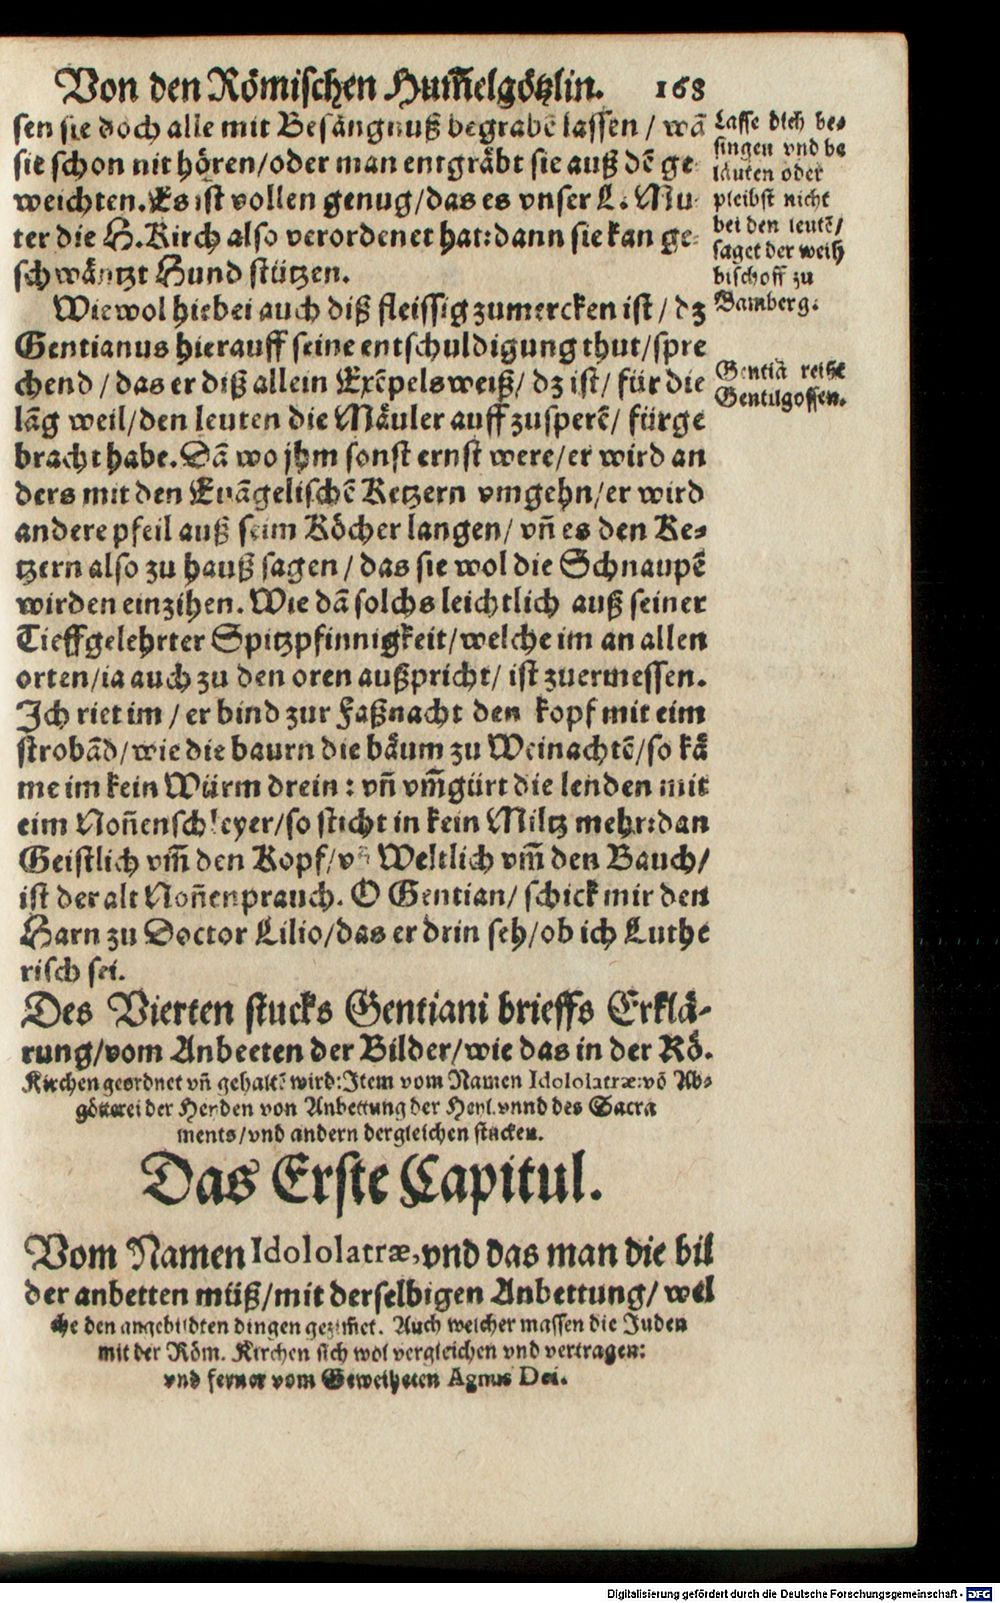 Von den Römischen Hum̃elgötzlin. 168
sen sie doch alle mit Besängnuß begrabē lassen / wā
sie schon nit hören/oder man entgräbt sie auß dē ge-
weichten. Es ist vollen genug/das es vnser L. Mu-
ter die H. Kirch also verordenet hat: dann sie kan ge-
schwäntzt Hund stützen.
Lasse dich be-
singen vnd be
läuten oder
pleibst nicht
bei den leutē/
saget der weih
bischoff zu
Bamberg.
Wiewol hiebei auch diß fleissig zumercken ist / dz
Gentianus hierauff seine entschuldigung thut/spre
chend / das er diß allein Exēpelsweiß/ dz ist/ für die
lāg weil/den leuten die Mäuler auff zusperē/ fürge
bracht habe. Dā wo jhm sonst ernst were/er wird an
ders mit den Euāgelischē Ketzern vmgehn/er wird
andere pfeil auß seim Köcher langen/ vn̄ es den Ke-
tzern also zu hauß sagen / das sie wol die Schnaupē
wirden einzihen. Wie dā solchs leichtlich auß seiner
Tieffgelehrter Spitzpfinnigkeit/welche im an allen
orten/ia auch zu den oren außpricht/ ist zuermessen.
Ich riet im / er bind zur Faßnacht den kopf mit eim
strobād/wie die baurn die bäum zu Weinachtē/so kä
me im kein Würm drein : vn̄ vm̃gürt die lenden mit
eim Non̄enschleyer/so sticht in kein Miltz mehr: dan
Geistlich vm̃ den Kopf/vn̄ Weltlich vm̃ den Bauch/
ist der alt Non̄enprauch. O Gentian/ schick mir den
Harn zu Doctor Lilio/das er drin seh/ob ich Luthe
risch sei.
Gentiā reißt
Gentilgossen.
Des Vierten stucks Gentiani brieffs Erklä-
rung/vom Anbeeten der Bilder/wie das in der Rö.
Kirchen geordnet vn̄ gehaltē wird: Item vom Namen Idololatræ: vō Ab-
götterei der Heyden von Anbettung der Heyl. vnnd des Sacra
ments/vnd andern dergleichen stucken.
Das Erste Capitul.
Vom Namen Idololatræ, vnd das man die bil
der anbetten müß/mit derselbigen Anbettung/ wel
che den angebildten dingen gezim̃et. Auch welcher massen die Juden
mit der Röm. Kirchen sich wol vergleichen vnd vertragen:
vnd ferner vom Geweiheten Agnus Dei.
Digitalisierung gefördert durch die Deutsche Forschungsgemeinschaft - DFG